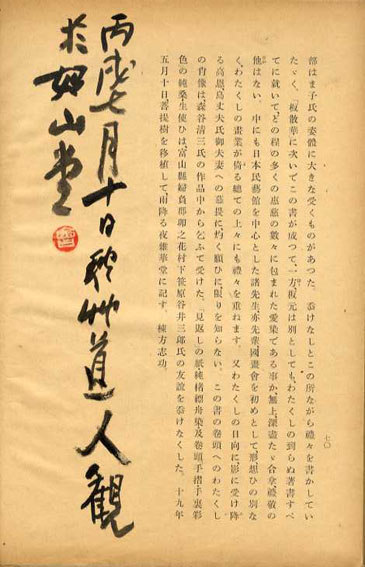 七〇
部はま子氏の姿體に大きな受くものがあつた。忝けなしとこの所ながら禮々を書かしてい
たゞく。「板散華に次いでこの書が成つて、一方板元は別としても、わたくしの到らぬ著書すべ
てに就いて、どの程の多くの恵慈の數々に包まれた愛染である事か。無上、深盡たゞ合掌、禮敬の
他はない。中にも日本民藝館を中心とした諸先生、亦先輩國畫會を初めとして、形想ひの別な
く、わたくしの畫業が倚る總ての上々にも禮々を重ねます。又わたくしの日向に影に受け降
る高恩、島丈夫氏御夫妻への畏に灼く願ひに、限りを知らない。この書の卷頭へのわたくし
の肖像は、森谷清三氏の作品中から乞ふて受けた。「見返しの紙純楮標舟染及卷頭手摺手裏彩
色の純桑生使ひは、富山縣婦負郡卯之花村下笹原谷井三郎氏の友誼を忝けなくした。十九年
五月十日菩提樹を移植して、雨降る夜雑華堂に記す。棟方志功。
丙戌七月十日秋艸道人観
於山堂
會